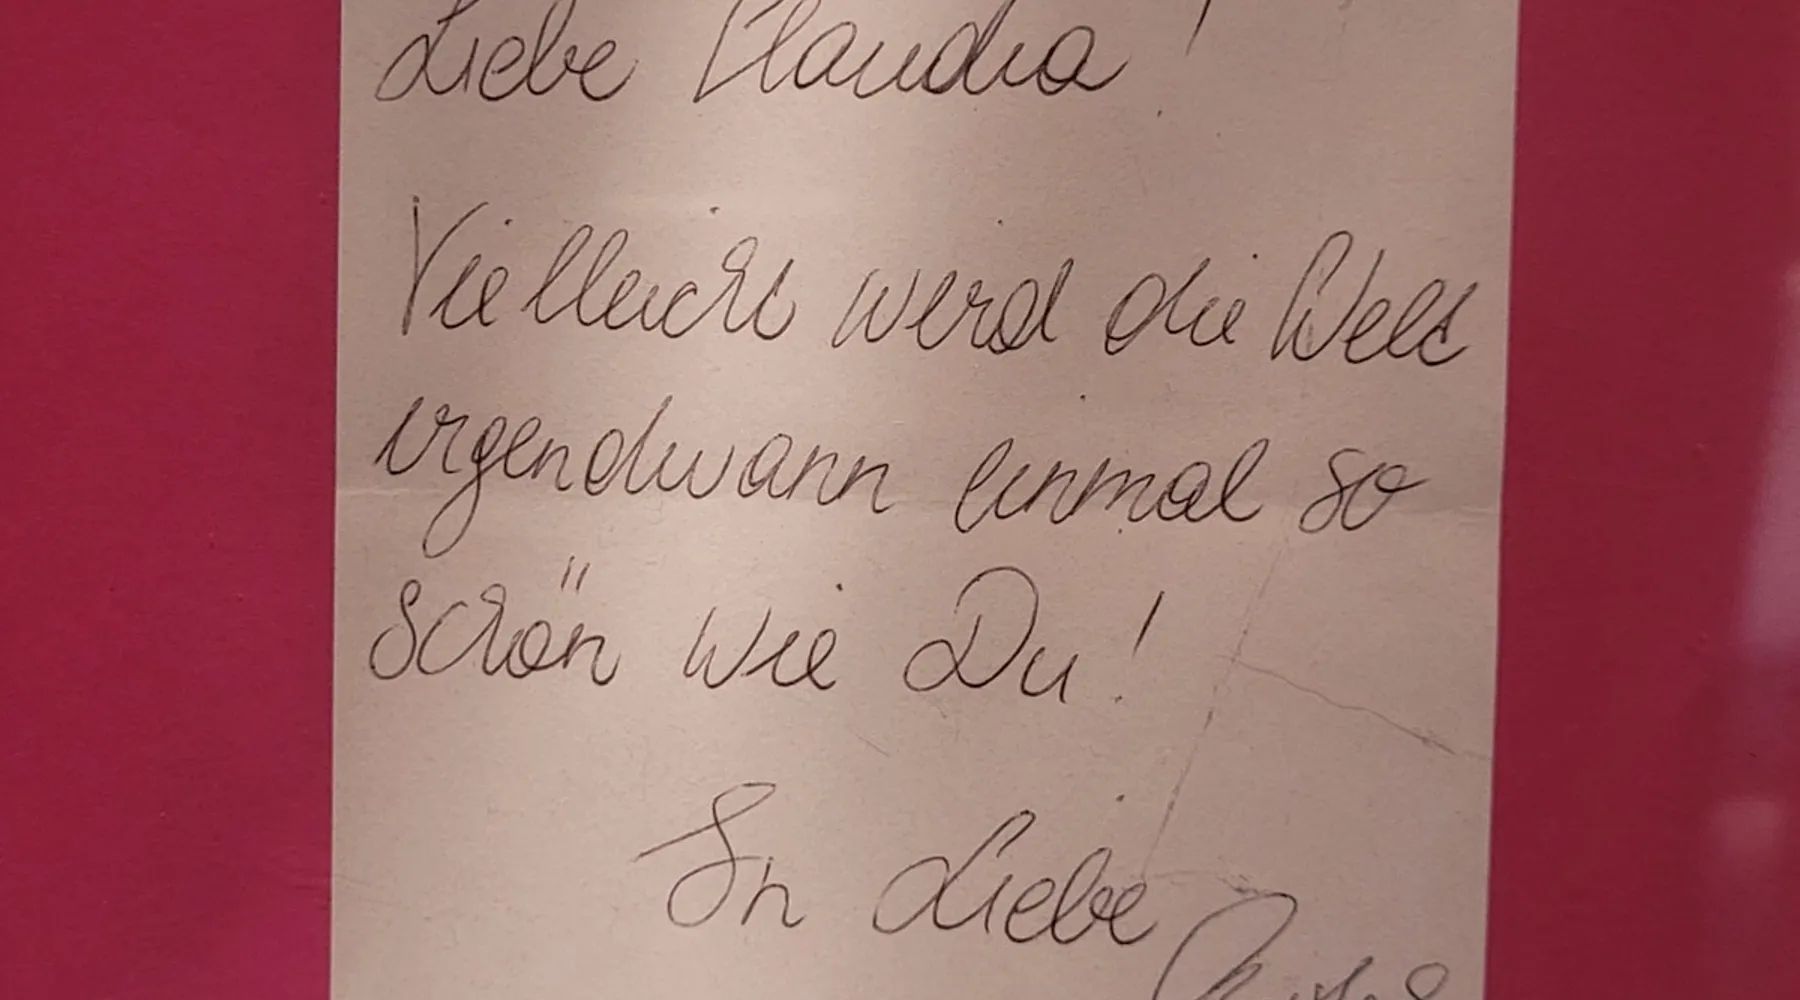 Liebe Claudia!
Vielleicht wird die Welt
irgendwann einmal so
schön wie Du!
In Liebe